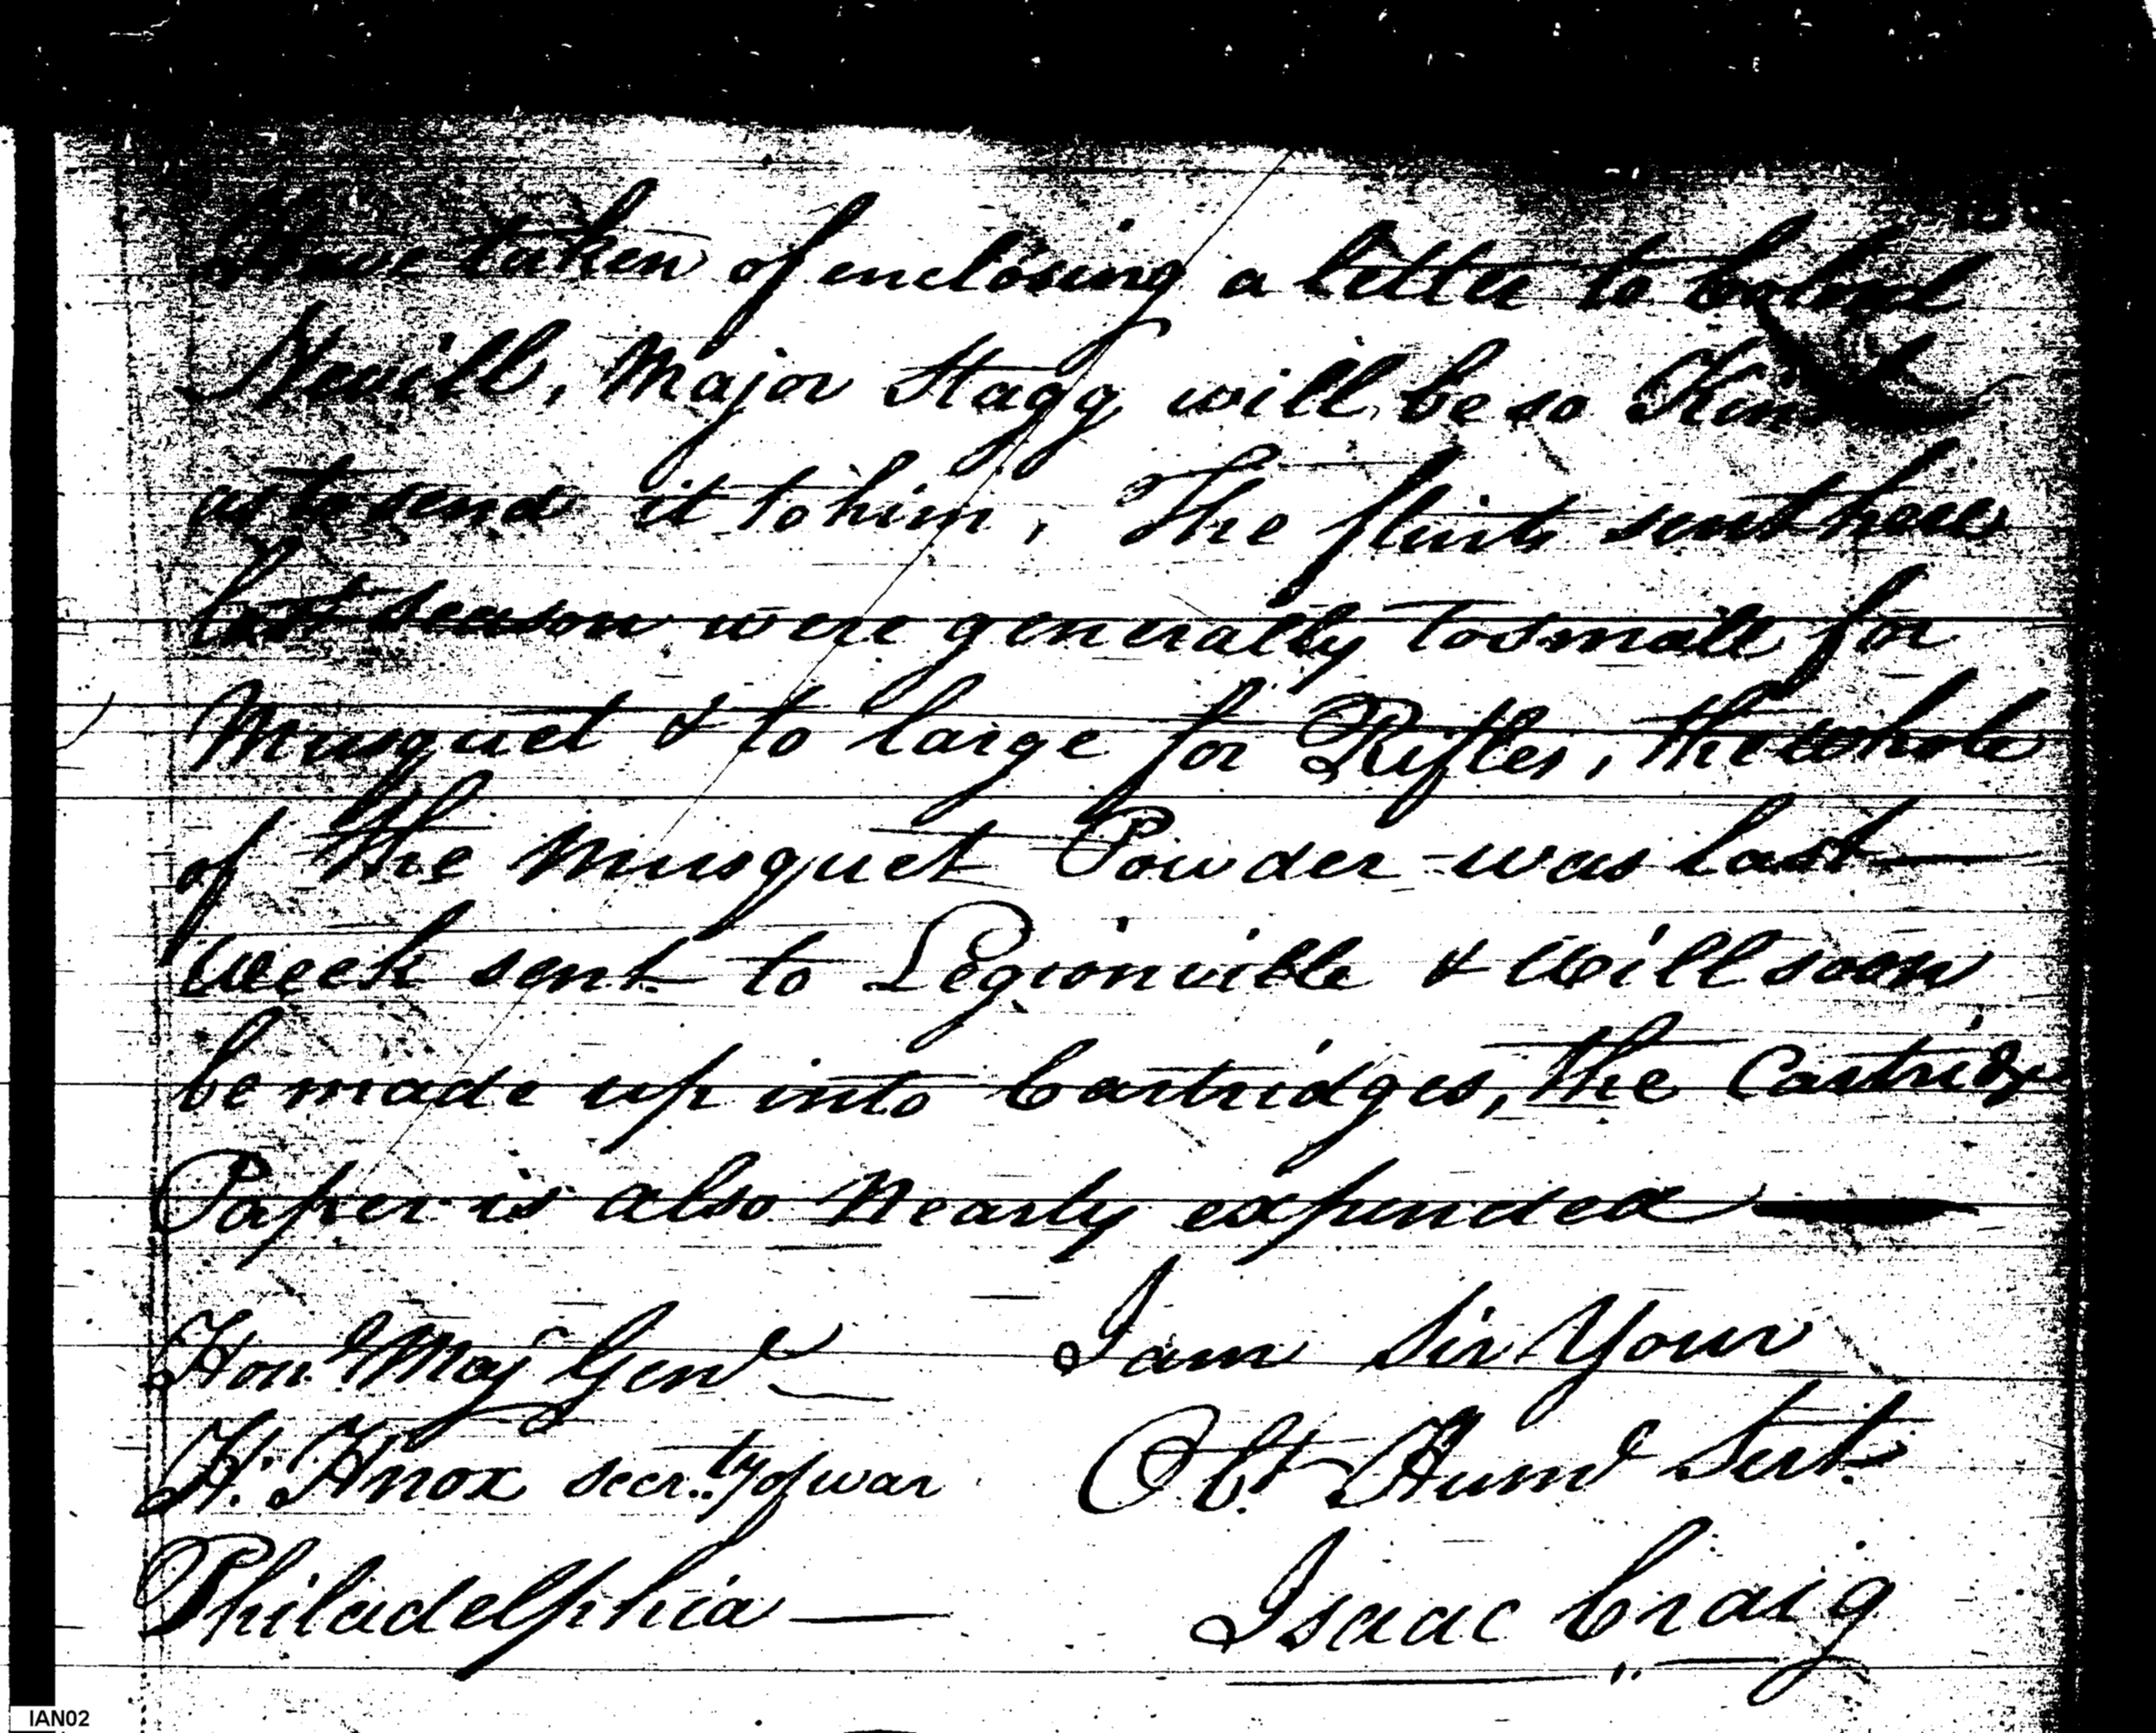 Have taken of enclosing a letter to Colonel
Nevill, Major Stagg will be so Kind
as to send it to him, The flints sent here
last season were generally too small for
Musquet & to large for Rifles, the whole
of the Musquet Powder was last
Week sent to Legionville & Will soon
be made up into Cartridges, the Cartridge
Paper is also Nearly expended
Hond Majr Genl
I am Sir Your
H. Knox secrty of war
Obt Huml Sert
Philadelphia
Isaac Craig
IAN02